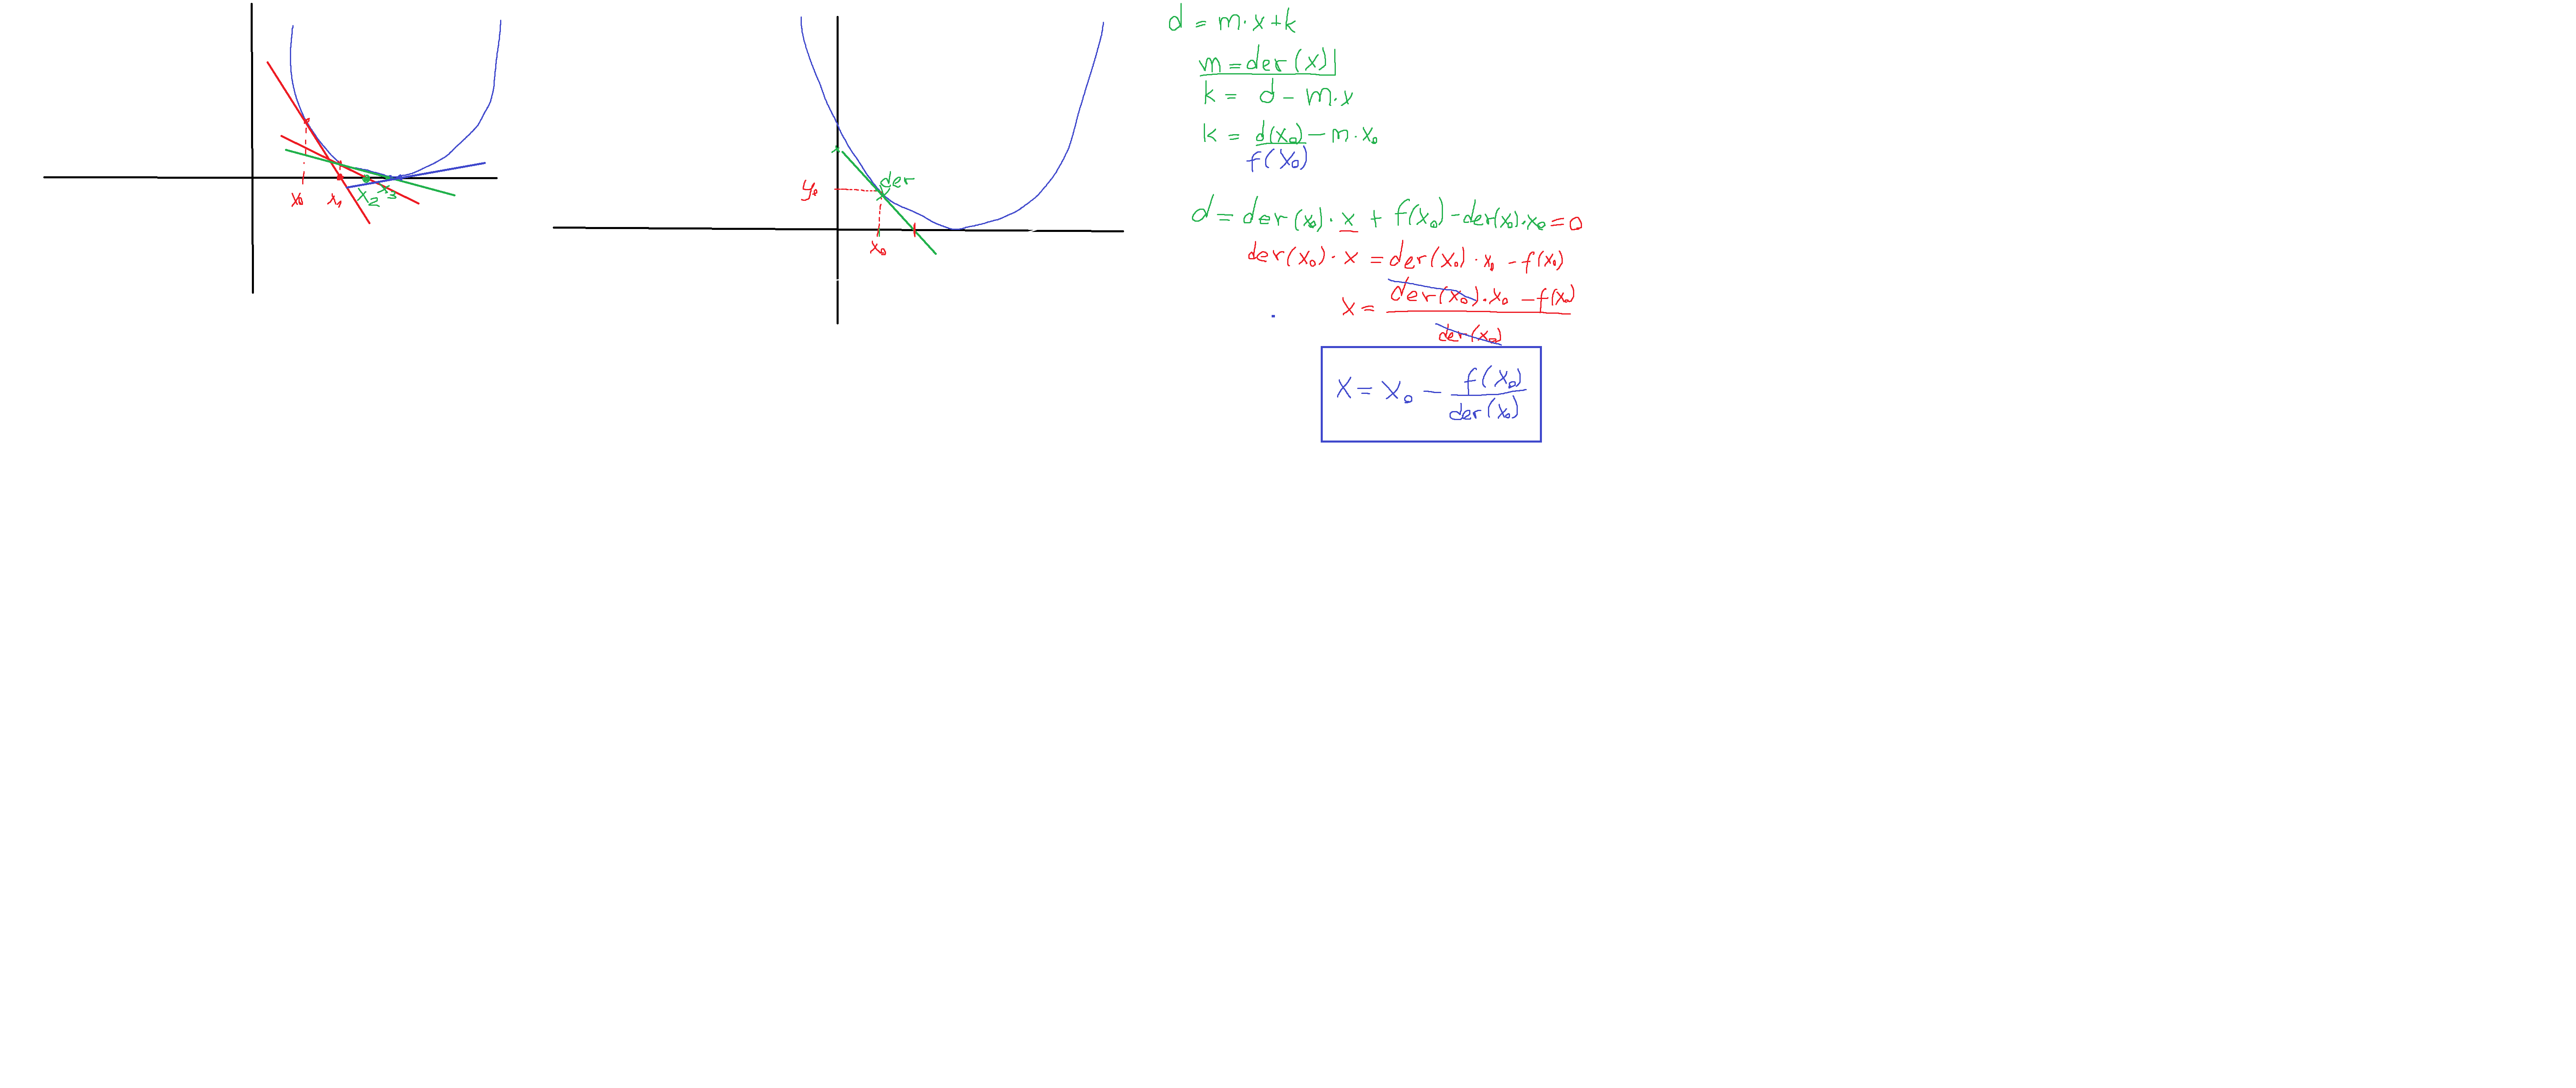 x₀ x₁ x₂ x₃
der
y₀
x₀
d = m·x+k
m = der(x)
k = d - m·x
k = d(x₀) - m·x₀
f(x₀)
d = der(x₀)·x + f(x₀) - der(x₀)·x₀ = 0
der(x₀)·x = der(x₀)·x₀ - f(x₀)
x = der(x₀)·x₀ - f(x₀)
der(x₀)
x = x₀ - f(x₀)
der(x₀)